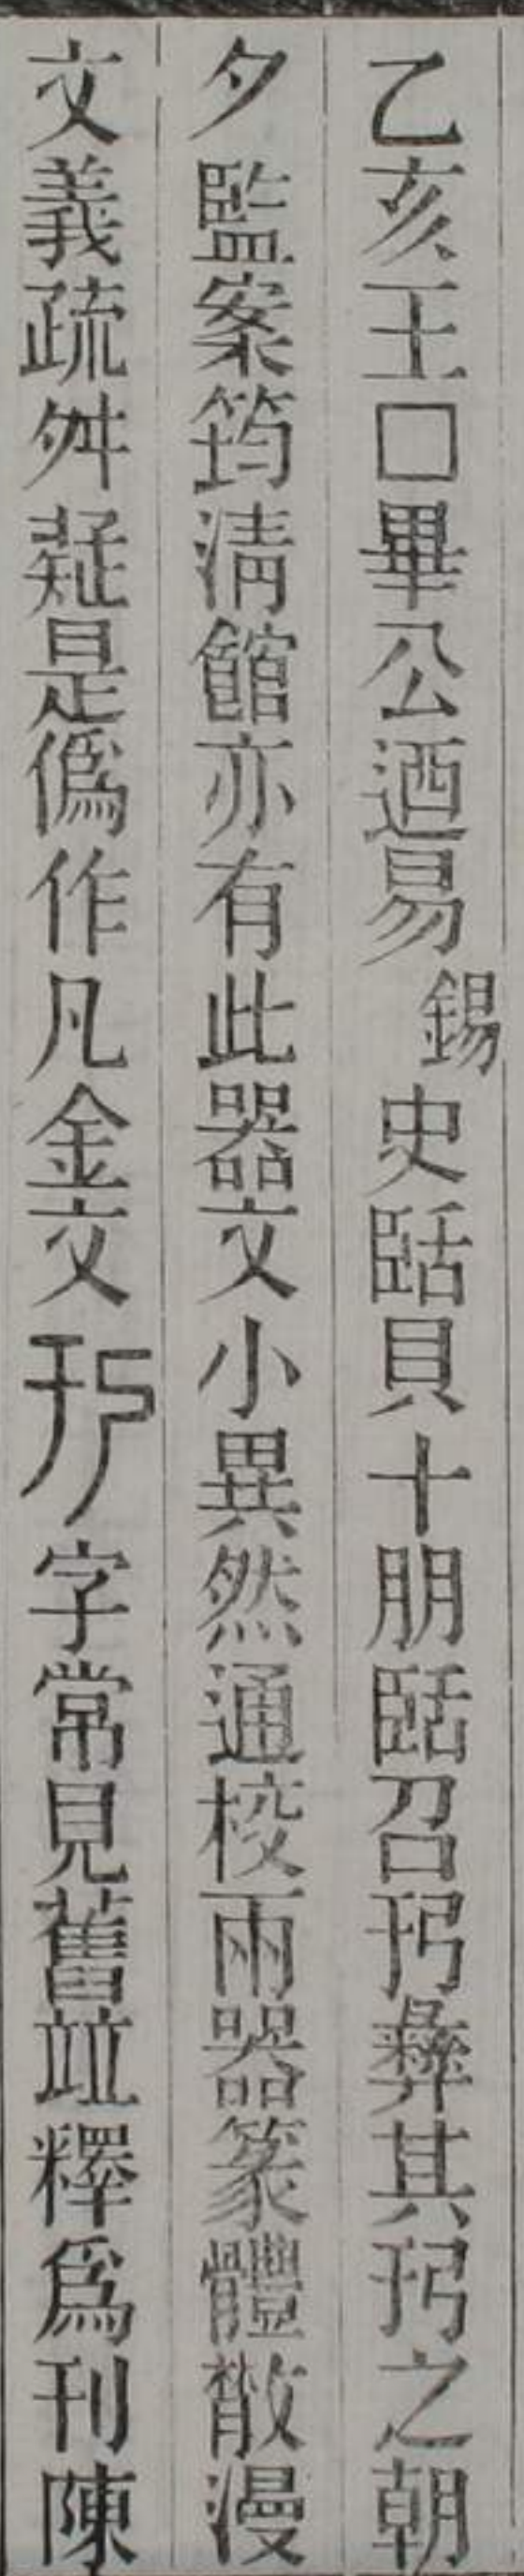 乙亥王□畢公迺易錫史貝十朋召彝其之朝
夕監案筠清館亦有此器文小異然通校兩器篆體散漫
文義疏舛疑是僞作凡金文字常見舊竝釋爲刊陳